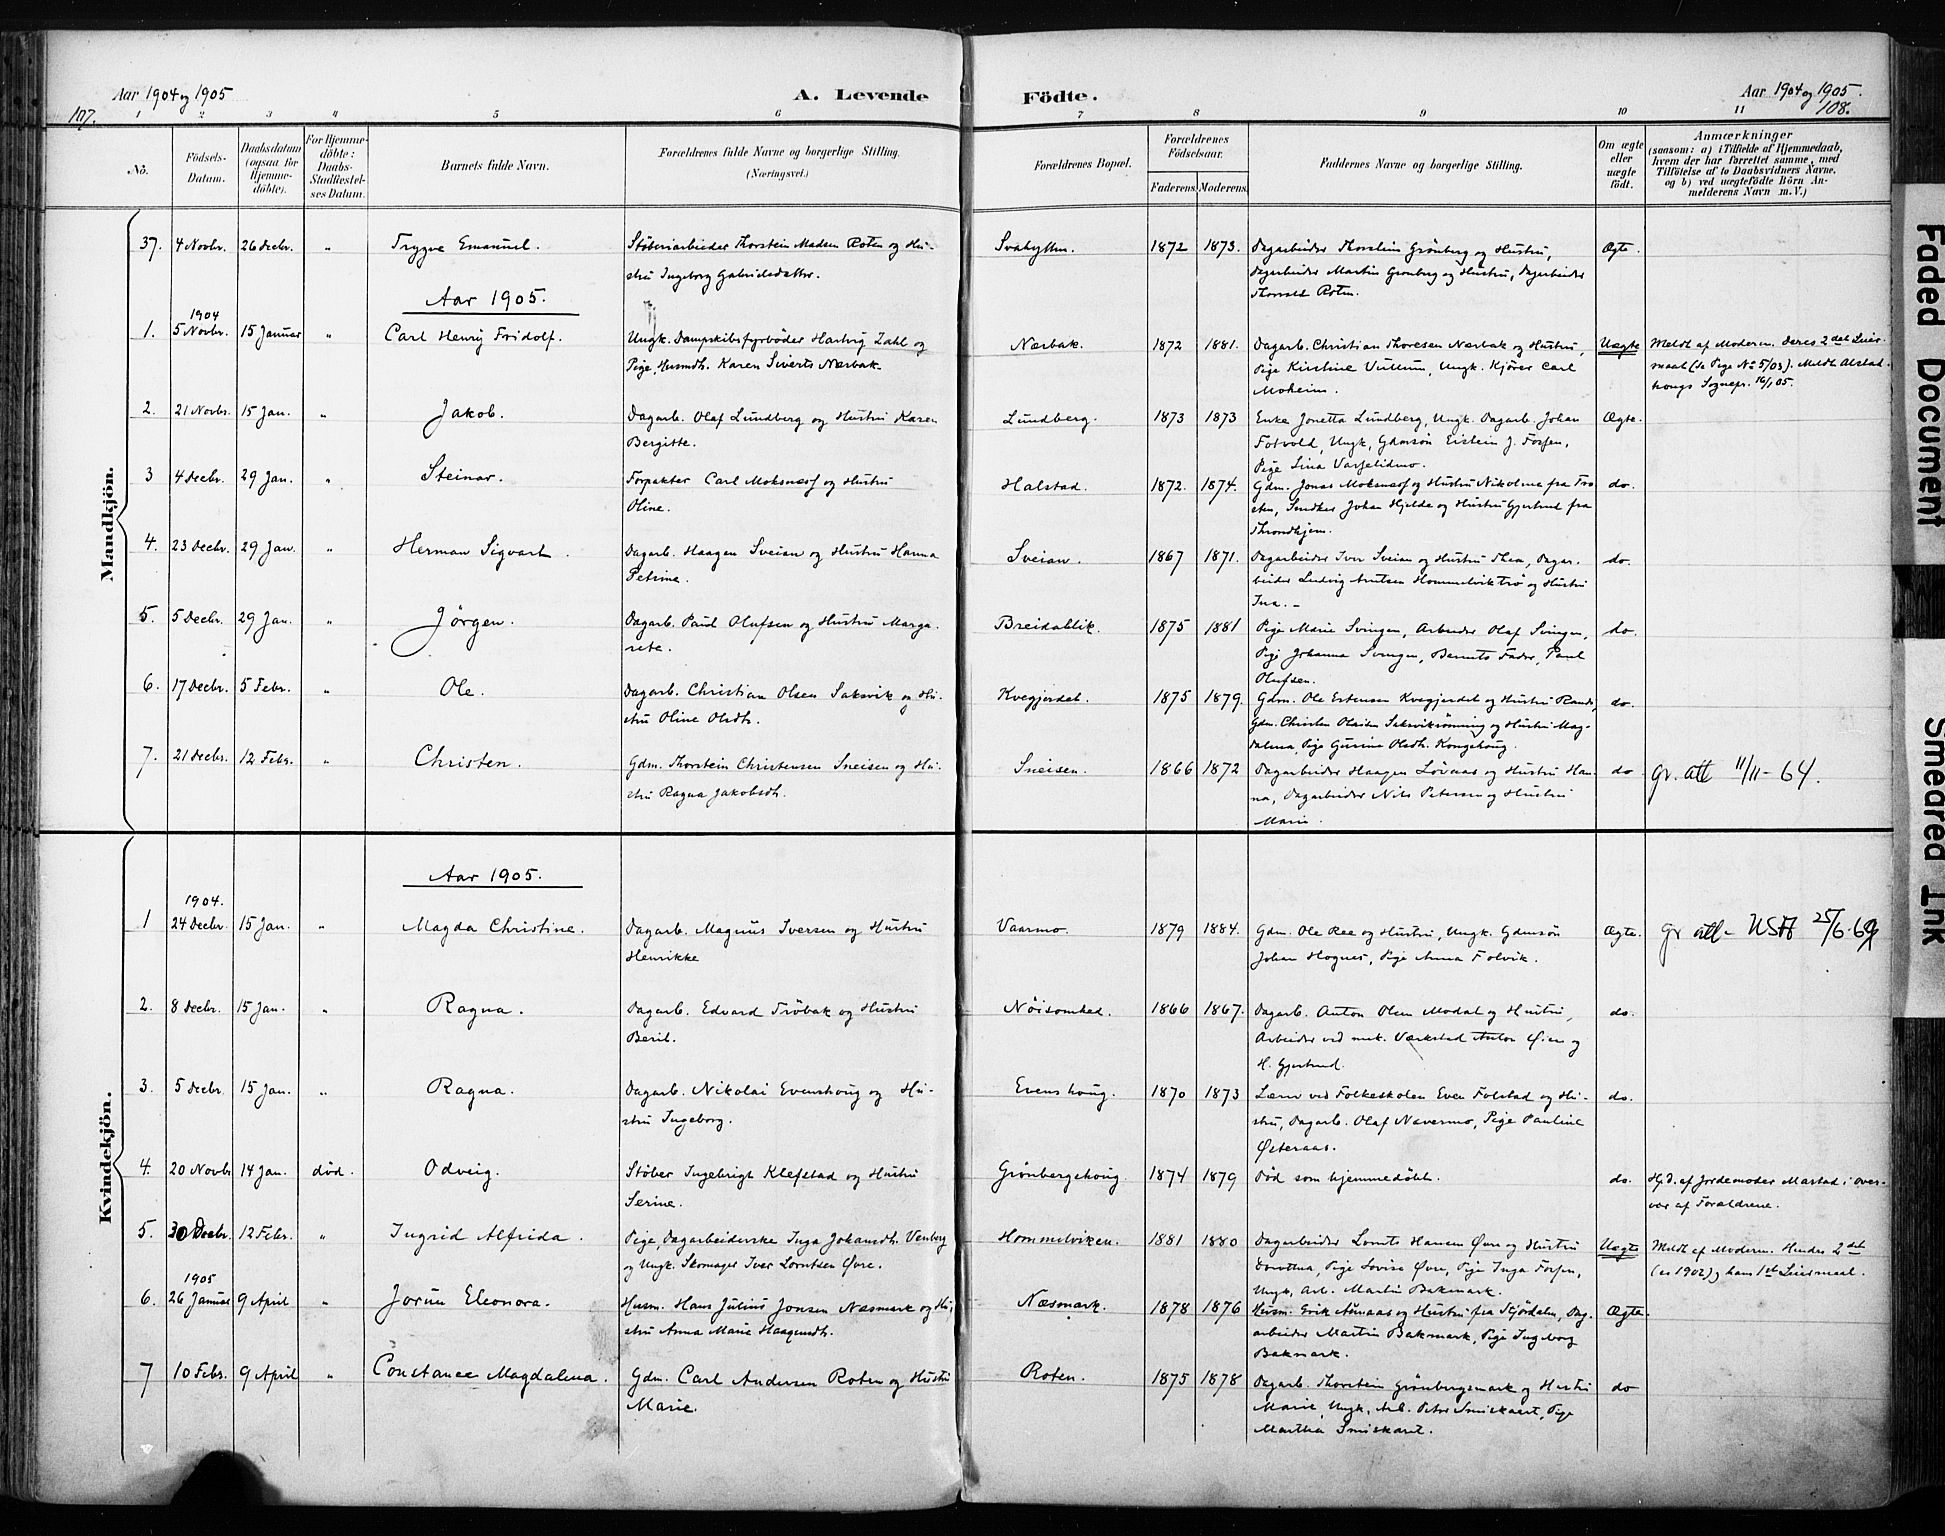 Aar 1904 og 1905
A. Levende
Födte.
Aar 1904 og 1905.
107.
108.
1 2 3 4 5 6 7 8 9 10 11
No.
Födsels-Datum.
Daabsdatum (ogsaa for Hjemme-döbte).
For Hjemme-döbte: Daabs-Stadfæstel-ses Datum.
Barnets fulde Navn.
Forældrenes fulde Navne og borgerlige Stilling. (Næringsvei.)
Forældrenes Bopæl.
Forældrenes Födselsaar.
Faderens. Moderens.
Faddernes Navne og borgerlige Stilling.
Om ægte eller uægte födt.
Anmærkninger
(saasom: a) i Tilfælde af Hjemmedaab, hvem der har forrettet samme, med Tilföielse af to Daabsvidners Navne, og b) ved uægtefödte Börn Anmelderens Navn m. V.)
Mandkjön.
37. 4 Novbr. 26 Decbr. " Trygve Emanuel. Støberiarbeider Thorstein Madsen Roten og Hu- Svahyllen. 1872 1873. Dagarbeider Thorstein Grønberg og Hustru, Ægte.
stru Ingeborg Gabrielsdatter. Dagarbeider Martin Grønberg og Hustru, Dagarbeider
Thorvald Roten.
Aar 1905.
1904
1. 5 Novbr. 15 Januar " Carl Henry Fridolf. Ungk. Dampskibsfyrbøder Hartvig Dahl og Nærbak. 1872 1881. Dagarb. Christian Thoresen Nærbak og Hustru, Uægte Meldt af Moderen. Deres 2det Leier-
Pige, Husmdt. Karen Siverts Nærbak. Pige Kirstine Vullum, Ungk. Kjører Carl maal (se Pige No 5/03). Meldt Alstad-
Moheim. haugs Sognepr. 16/1 05.
2. 21 Novbr. 15 Jan. " Jakob. Dagarb. Olaf Lundberg og Hustru Karen Lundberg. 1873 1873 Enke Jonetta Lundberg, Ungk. Dagarb. Johan Ægte.
Bergitte. Folvold, Ungk. Gdmsøn Eistein J. Forsen,
Pige Lina Varselidmo.
3 4 Decbr. 29 Jan. " Steinar. Forpakter Carl Moksnæss og Hustru Halstad. 1872. 1874. Gdm. Jonas Moksnæss og Hustru Nikoline fra Fro- do.
Oline. sten, Snedker Johan Hjelde og Hustru Gjertrud fra
Throndhjem.
4. 23 Decbr. 29 Jan. " Herman Sigvart. Dagarb. Haagen Sveian og Hustru Hanna Sveian. 1867 1871. Dagarbeider Iver Sveian og Hustru Thea, Dagar- do.
Petrine. beider Ludvig Arntsen Hommelviktrø og Hustru
Ina. –
5. 5 Decbr. 29 Jan. " Jörgen. Dagarb. Paul Olufsen og Hustru Marga- Breidablik. 1875 1881 Pige Marie Svingen, Arbeider Olaf Svingen, do.
rete. Pige Johanna Svingen, Barnets Fader, Paul
Olufsen.
6. 17 Decbr. 5 Febr. " Ole. Dagarb. Christian Olsen Saksvik og Hu- Kvegjerdet. 1875 1879. Gdm. Ole Estensen Kvegjerdet og Hustru Randi, do.
stru Oline Olsdt. Gdm. Christen Olaisen Saksvikrønning og Hustru Mag-
dalena, Pige Gurine Olsdt. Kongshoug.
7. 21 Decbr. 12 Febr. " Christen. Gdm. Thorstein Christensen Sneisen og Hu- Sneisen. 1866 1872 Dagarbeider Haagen Løvaas og Hustru Han- do gr. att 11/11 - 64.
stru Ragna Jakobsdt. na, Dagarbeider Nils Petersen og Hustru
Marie.
Kvindekjön.
Aar 1905.
1904.
1 24 Decbr. 15 Jan. " Magda Christine. Dagarb. Magnus Iversen og Hustru Vaarmo. 1879 1884. Gdm. Ole Ree og Hustru, Ungk. Gdmsøn Ægte. gr att- USA 25/6.69
Henrikke Johan Hognes, Pige Anna Folvik.
2. 8 Decbr. 15 Jan. " Ragna. Dagarb. Edvard Frøbak og Hustru Nöisomhed. 1866 1867. Dagarb. Anton Olsen Modal og Hustru, do.
Berit. Arbeider ved mek. Værksted Anton Øien og
H. Gjertrud.
3. 5 Decbr. 15 Jan. " Ragna. Dagarb. Nikolai Evenshoug og Hu- Evenshoug. 1870 1873 Lærer ved Folkeskolen Even Folstad og Hu- do.
stru Ingeborg. stru, Dagarb. Olaf Navermo, Pige Pauline
Østeraas.
4. 20 Novbr 14 Jan. död. Odveig. Støber Ingebrigt Klefstad og Hustru Grönbergshoug. 1874 1879 Död som hjemmedöbt. do. Hj.d. af Jordemoder Marstad i Over-
Serine. vær af Forældrene.
5. 30 Decbr. 12 Febr. " Ingrid Alfrida. Pige, Dagarbeiderske Inga Johansdt. Venberg Hommelviken. 1881 1880 Dagarbeider Lornts Hansen Øvre og Hustru Uægte Meldt af Moderen. Hendes 2det
og Ungk. Skomager Iver Lorntsen Øvre. Dorothea, Pige Lovise Øvre, Pige Inga Forsen, (es 1902) og hans 1ste Leiermaal.
Ungk. Arb. Martin Bakmark.
1905
6. 26 Januar 9 April " Jorun Eleonora. Husm. Hans Julius Jonsen Næsmark og Hu- Næsmark. 1878 1876 Husm. Erik Aunaas og Hustru fra Stjørdalen, Dag- Ægte.
stru Anna Marie Haagensdt. arbeider Martin Bakmark, Pige Ingeborg
Bakmark.
7 10 Febr. 9 April " Constance Magdalena. Gdm. Carl Andersen Roten og Hustru Roten. 1875 1878 Dagarb. Thorstein Grønbergsmark og Hustru do
Marie. Marie, Ungk. Arb. Peter Smiskaret, Pige
Martha Smiskaret.
Faded Document
Smeared Ink